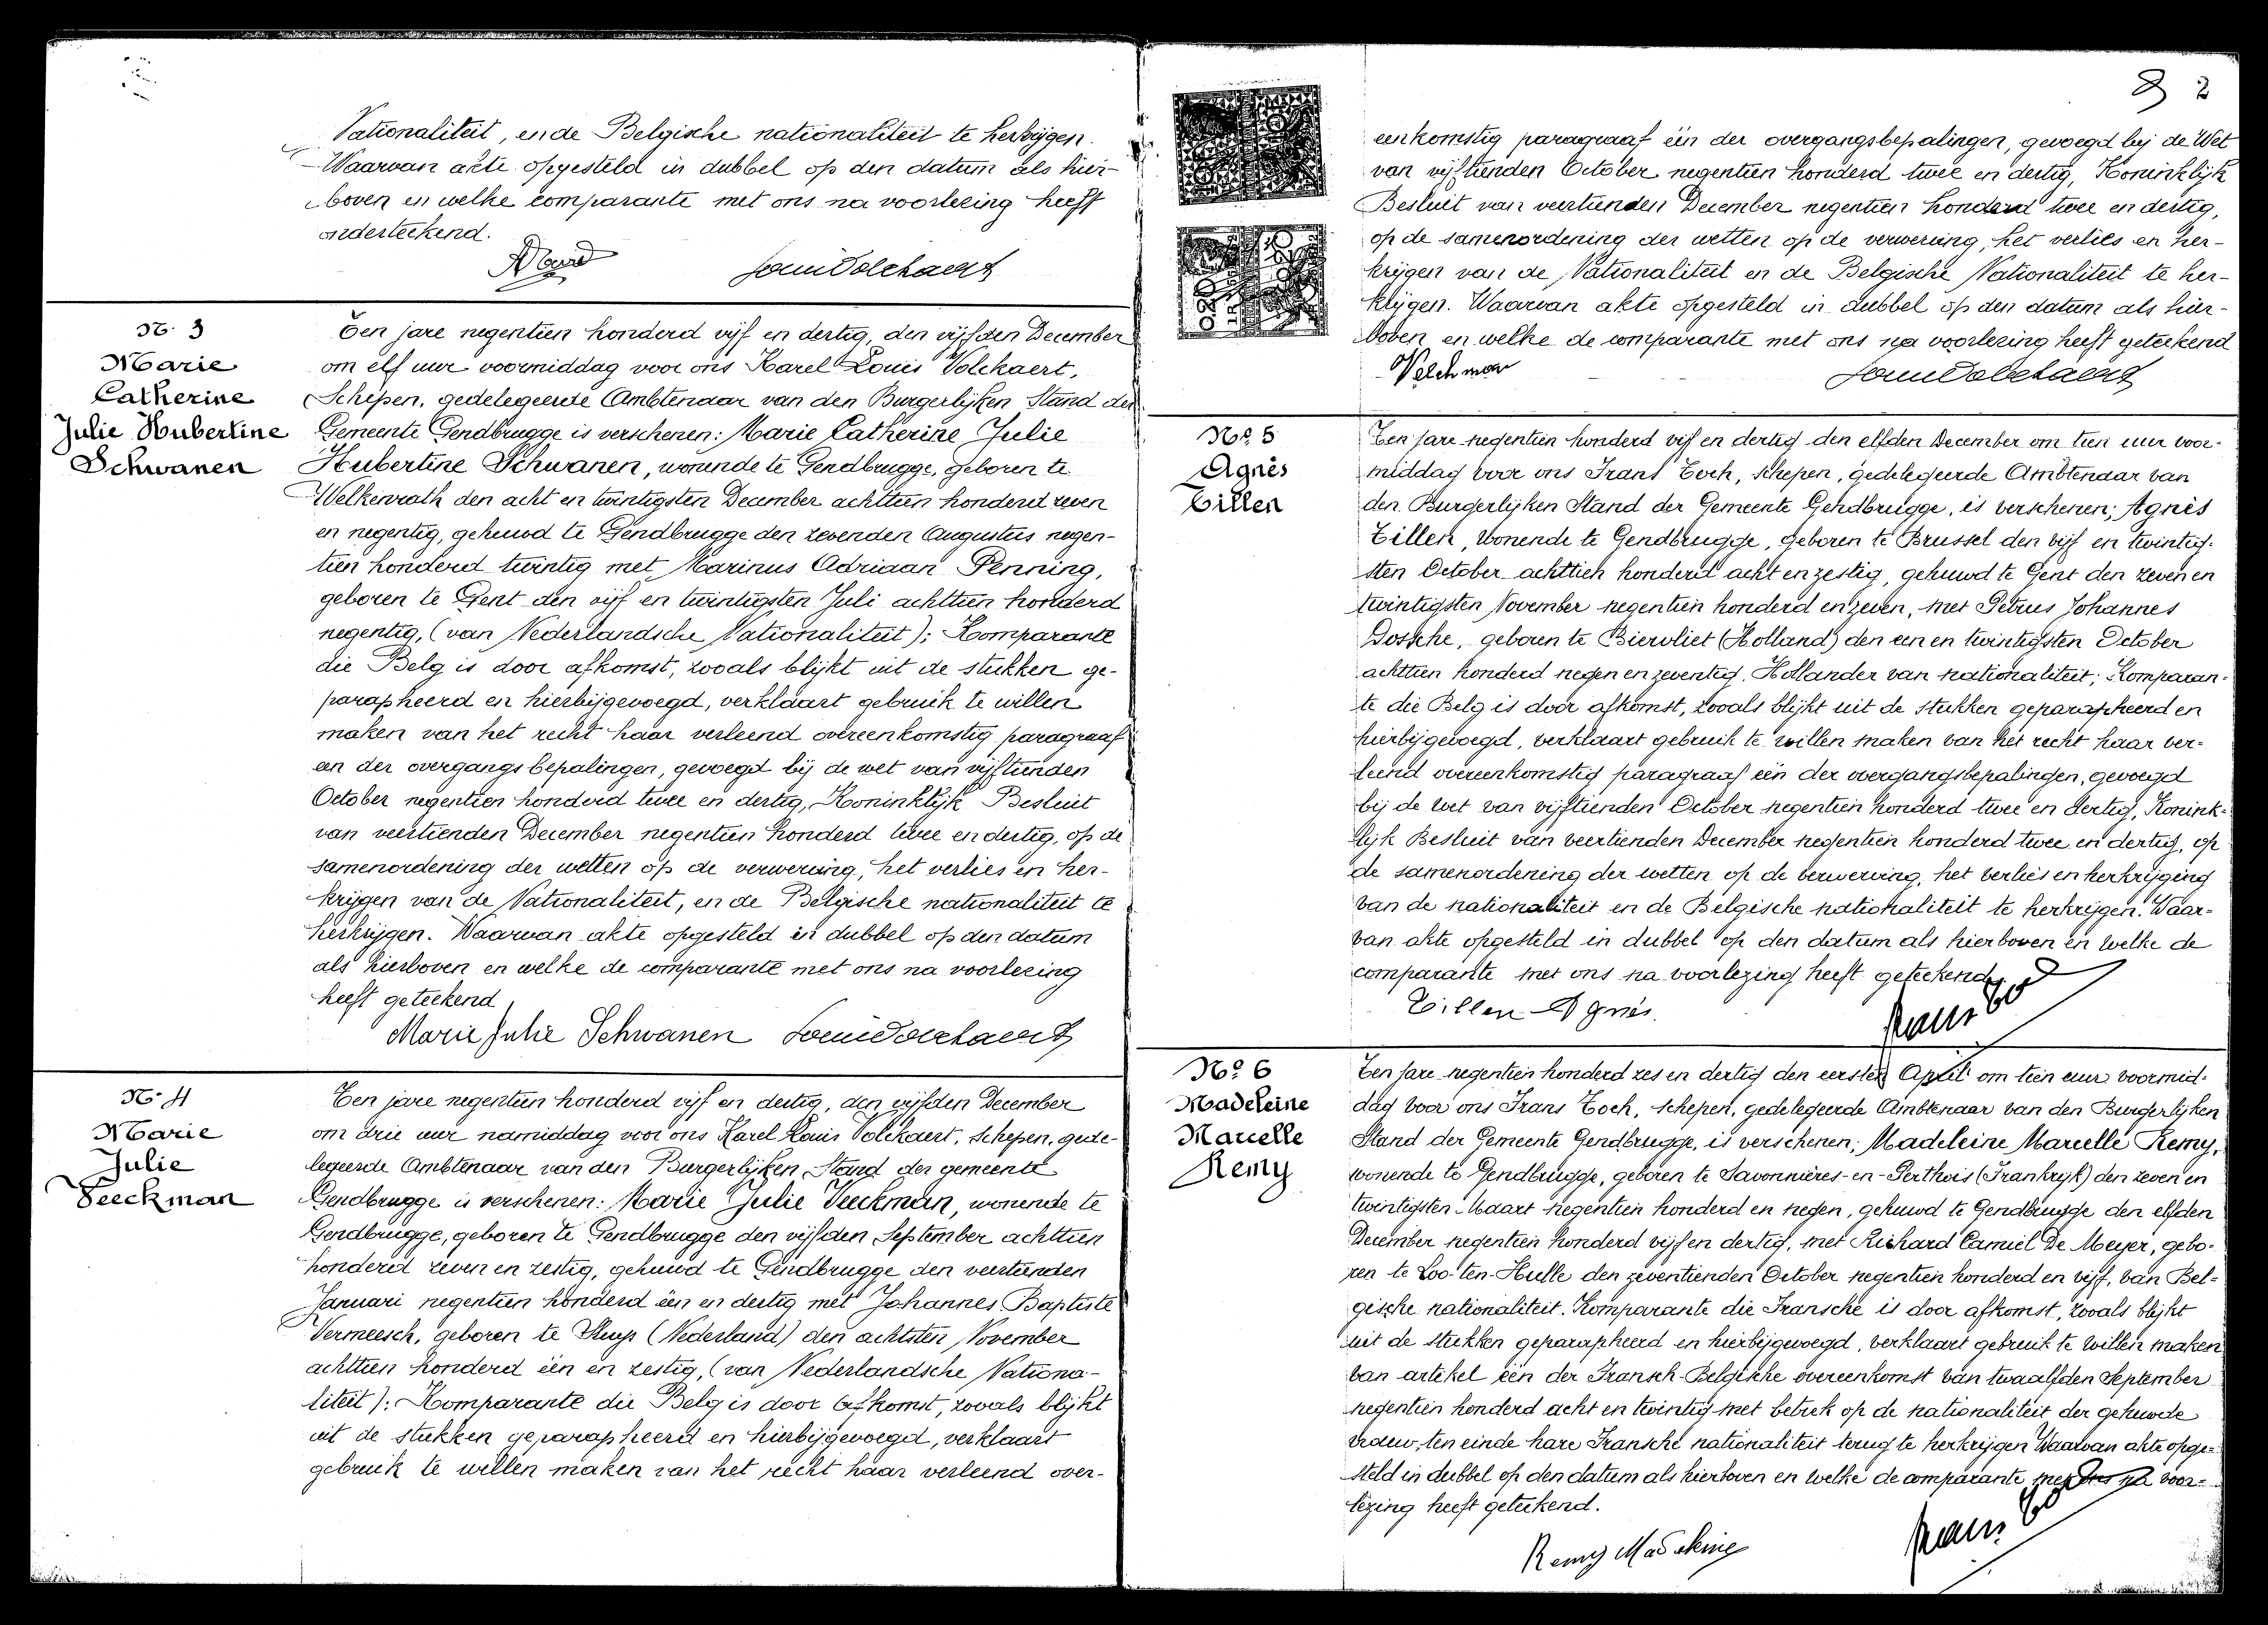 Nationaliteit, en de Belgische nationaliteit te herkrijgen.
Waarvan akte opgesteld in dubbel op den datum als hier-
boven en welke comparante met ons na voorlezing heeft
onderteekend.
Louis Volckaert
N. 3
Marie
Catherine
Julie Hubertine
Schwanen
Ten jare negentien honderd vijf en dertig, den vijfden December
om elf uur voormiddag voor ons Karel Louis Volckaert,
Schepen, gedelegeerde Ambtenaar van den Burgerlijken Stand der
Gemeente Gendbrugge is verschenen: Marie Catherine Julie
Hubertine Schwanen, wonende te Gendbrugge, geboren te
Welkenrath den acht en twintigsten December achttien honderd zeven
en negentig, gehuwd te Gendbrugge den zevenden Augustus negen-
tien honderd twintig met Marinus Adriaan Penning,
geboren te Gent den vijf en twintigsten Juli achttien honderd
negentig, (van Nederlandsche Nationaliteit); Komparante
die Belg is door afkomst, zooals blijkt uit de stukken ge-
parapheerd en hierbijgevoegd, verklaart gebruik te willen
maken van het recht haar verleend overeenkomstig paragraaf
een der overgangsbepalingen, gevoegd bij de wet van vijftienden
October negentien honderd twee en dertig, Koninklijk Besluit
van veertienden December negentien honderd twee en dertig, op de
samenordening der wetten op de verwerving, het verlies en her-
krijgen van de Nationaliteit, en de Belgische nationaliteit te
herkrijgen. Waarvan akte opgesteld in dubbel op den datum
als hierboven en welke de comparante met ons na voorlezing
heeft geteekend
Marie Julie Schwanen Louis Volckaert
N. 4
Marie
Julie
Veeckman
Ten jare negentien honderd vijf en dertig, den vijfden December
om drie uur namiddag voor ons Karel Louis Volckaert, Schepen, gede-
legeerde Ambtenaar van den Burgerlijken Stand der gemeente
Gendbrugge is verschenen: Marie Julie Veeckman, wonende te
Gendbrugge, geboren te Gendbrugge den vijfden September achttien
honderd zeven en zestig, gehuwd te Gendbrugge den veertienden
Januari negentien honderd één en dertig met Johannes Baptiste
Vermeesch, geboren te Sluys (Nederland) den achtsten November
achttien honderd één en zestig, (van Nederlandsche Nationa-
liteit): Komparante die Belg is door afkomst, zooals blijkt
uit de stukken geparapheerd en hierbijgevoegd, verklaart
gebruik te willen maken van het recht haar verleend over-
2
eenkomstig paragraaf één der overgangsbepalingen, gevoegd bij de Wet
van vijftienden October negentien honderd twee en dertig, Koninklijk
Besluit van veertienden December negentien honderd twee en dertig,
op de samenordening der wetten op de verwerving, het verlies en her-
krijgen van de Nationaliteit en de Belgische Nationaliteit te her-
krijgen. Waarvan akte opgesteld in dubbel op den datum als hier-
boven en welke de comparante met ons na voorlezing heeft geteekend
Louis Volckaert
0.20
Nº 5
Agnès
Tillen
Ten jare negentien honderd vijf en dertig den elfden December om tien uur voor-
middag voor ons Frans Toch, schepen, gedelegeerde Ambtenaar van
den Burgerlijken Stand der Gemeente Gendbrugge, is verschenen; Agnès
Tillen, wonende te Gendbrugge, geboren te Brussel den vijf en twintig-
sten October achttien honderd acht en zestig, gehuwd te Gent den zeven en
twintigsten November negentien honderd en zeven, met Petrus Johannes
Dossche, geboren te Biervliet (Holland) den een en twintigsten October
achttien honderd negen en zeventig, Hollander van nationaliteit; Komparan-
te die Belg is door afkomst, zooals blijkt uit de stukken geparapheerd en
hierbijgevoegd, verklaart gebruik te willen maken van het recht haar ver-
leend overeenkomstig paragraaf één der overgangsbepalingen, gevoegd
bij de wet van vijftienden October negentien honderd twee en dertig, Konink-
lijk Besluit van veertienden December negentien honderd twee en dertig, op
de samenordening der wetten op de verwerving, het verlies en herkrijging
van de nationaliteit en de Belgische nationaliteit te herkrijgen. Waar-
van akte opgesteld in dubbel op den datum als hierboven en welke de
comparante met ons na voorlezing heeft geteekend
Tillen Agnès.
Nº 6
Madeleine
Marcelle
Remy
Ten jare negentien honderd zes en dertig den eersten April om tien uur voormid-
dag voor ons Frans Toch, schepen, gedelegeerde Ambtenaar van den Burgerlijken
Stand der Gemeente Gendbrugge, is verschenen; Madeleine Marcelle Remy,
wonende te Gendbrugge, geboren te Savonnières-en-Perthois (Frankrijk) den zeven en
twintigsten Maart negentien honderd en negen, gehuwd te Gendbrugge den elfden
December negentien honderd vijf en dertig, met Richard Camiel De Meyer, gebo-
ren te Loo-ten-Hulle den zeventienden October negentien honderd en vijf, van Bel-
gische nationaliteit. Komparante die Fransche is door afkomst, zooals blijkt
uit de stukken geparapheerd en hierbijgevoegd, verklaart gebruik te willen maken
van artikel één der Fransch-Belgische overeenkomst van twaalfden September
negentien honderd acht en twintig met betrek op de nationaliteit der gehuwde
vrouw, ten einde hare Fransche nationaliteit terug te herkrijgen Waarvan akte opge-
steld in dubbel op den datum als hierboven en welke de comparante met ons na voor-
lezing heeft geteekend.
Remy Madeleine